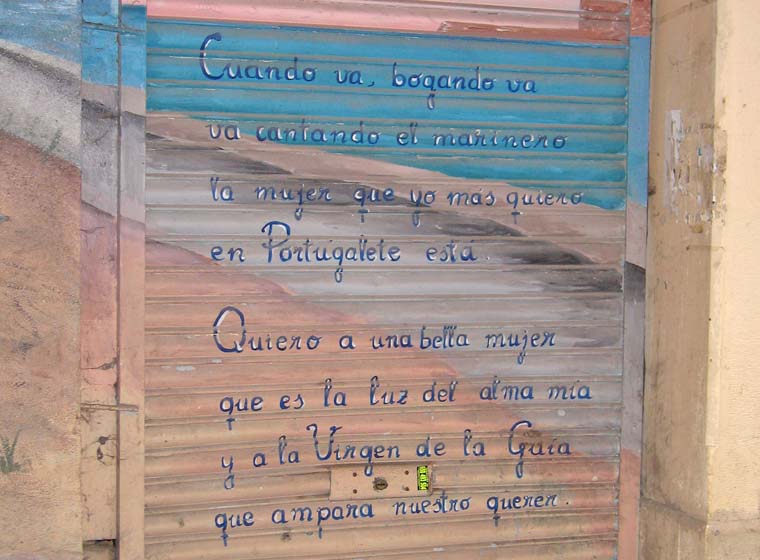 Cuando va, bogando va
va cantando el marinero
la mujer que yo más quiero
en Portugalete está.
Quiero a una bella mujer
que es la luz del alma mía
y a la Virgen de la Guía
que ampara nuestro querer.